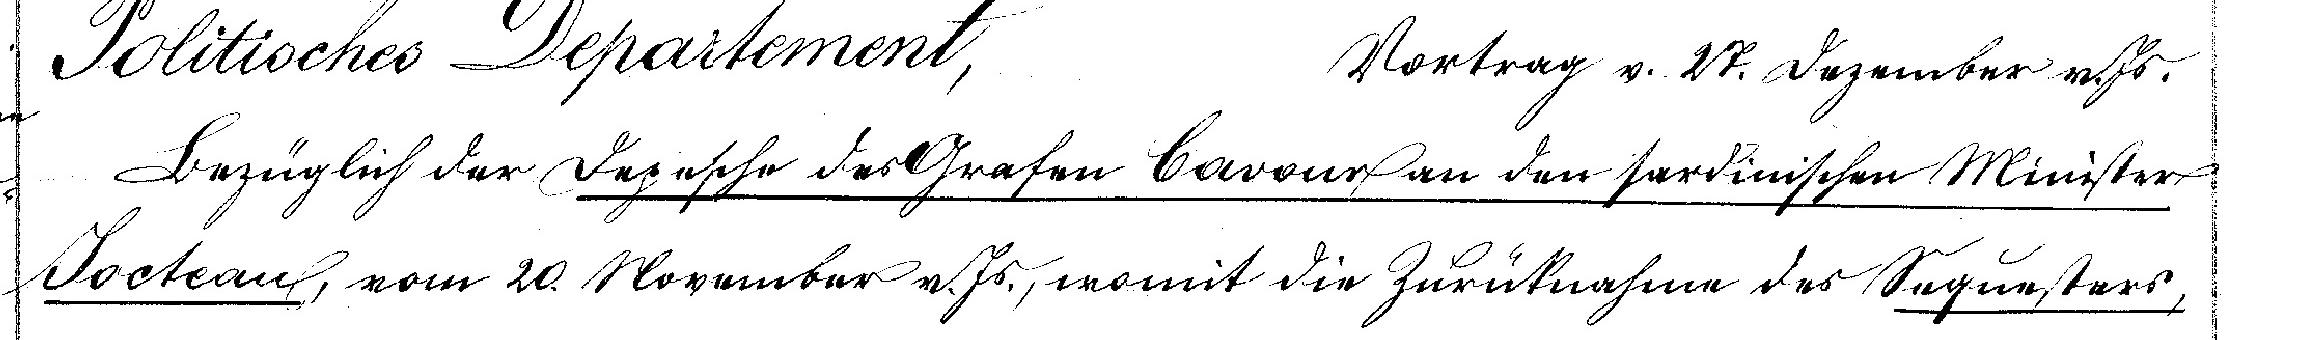 Politisches Departement, Vortrag v. 27. Dezember v. Js.
Bezüglich der Depesche des Grafen Cavour an den sardinischen Minister
Jocteau, vom 20. November v. Js., womit die Zurüknahme des Sequesters,